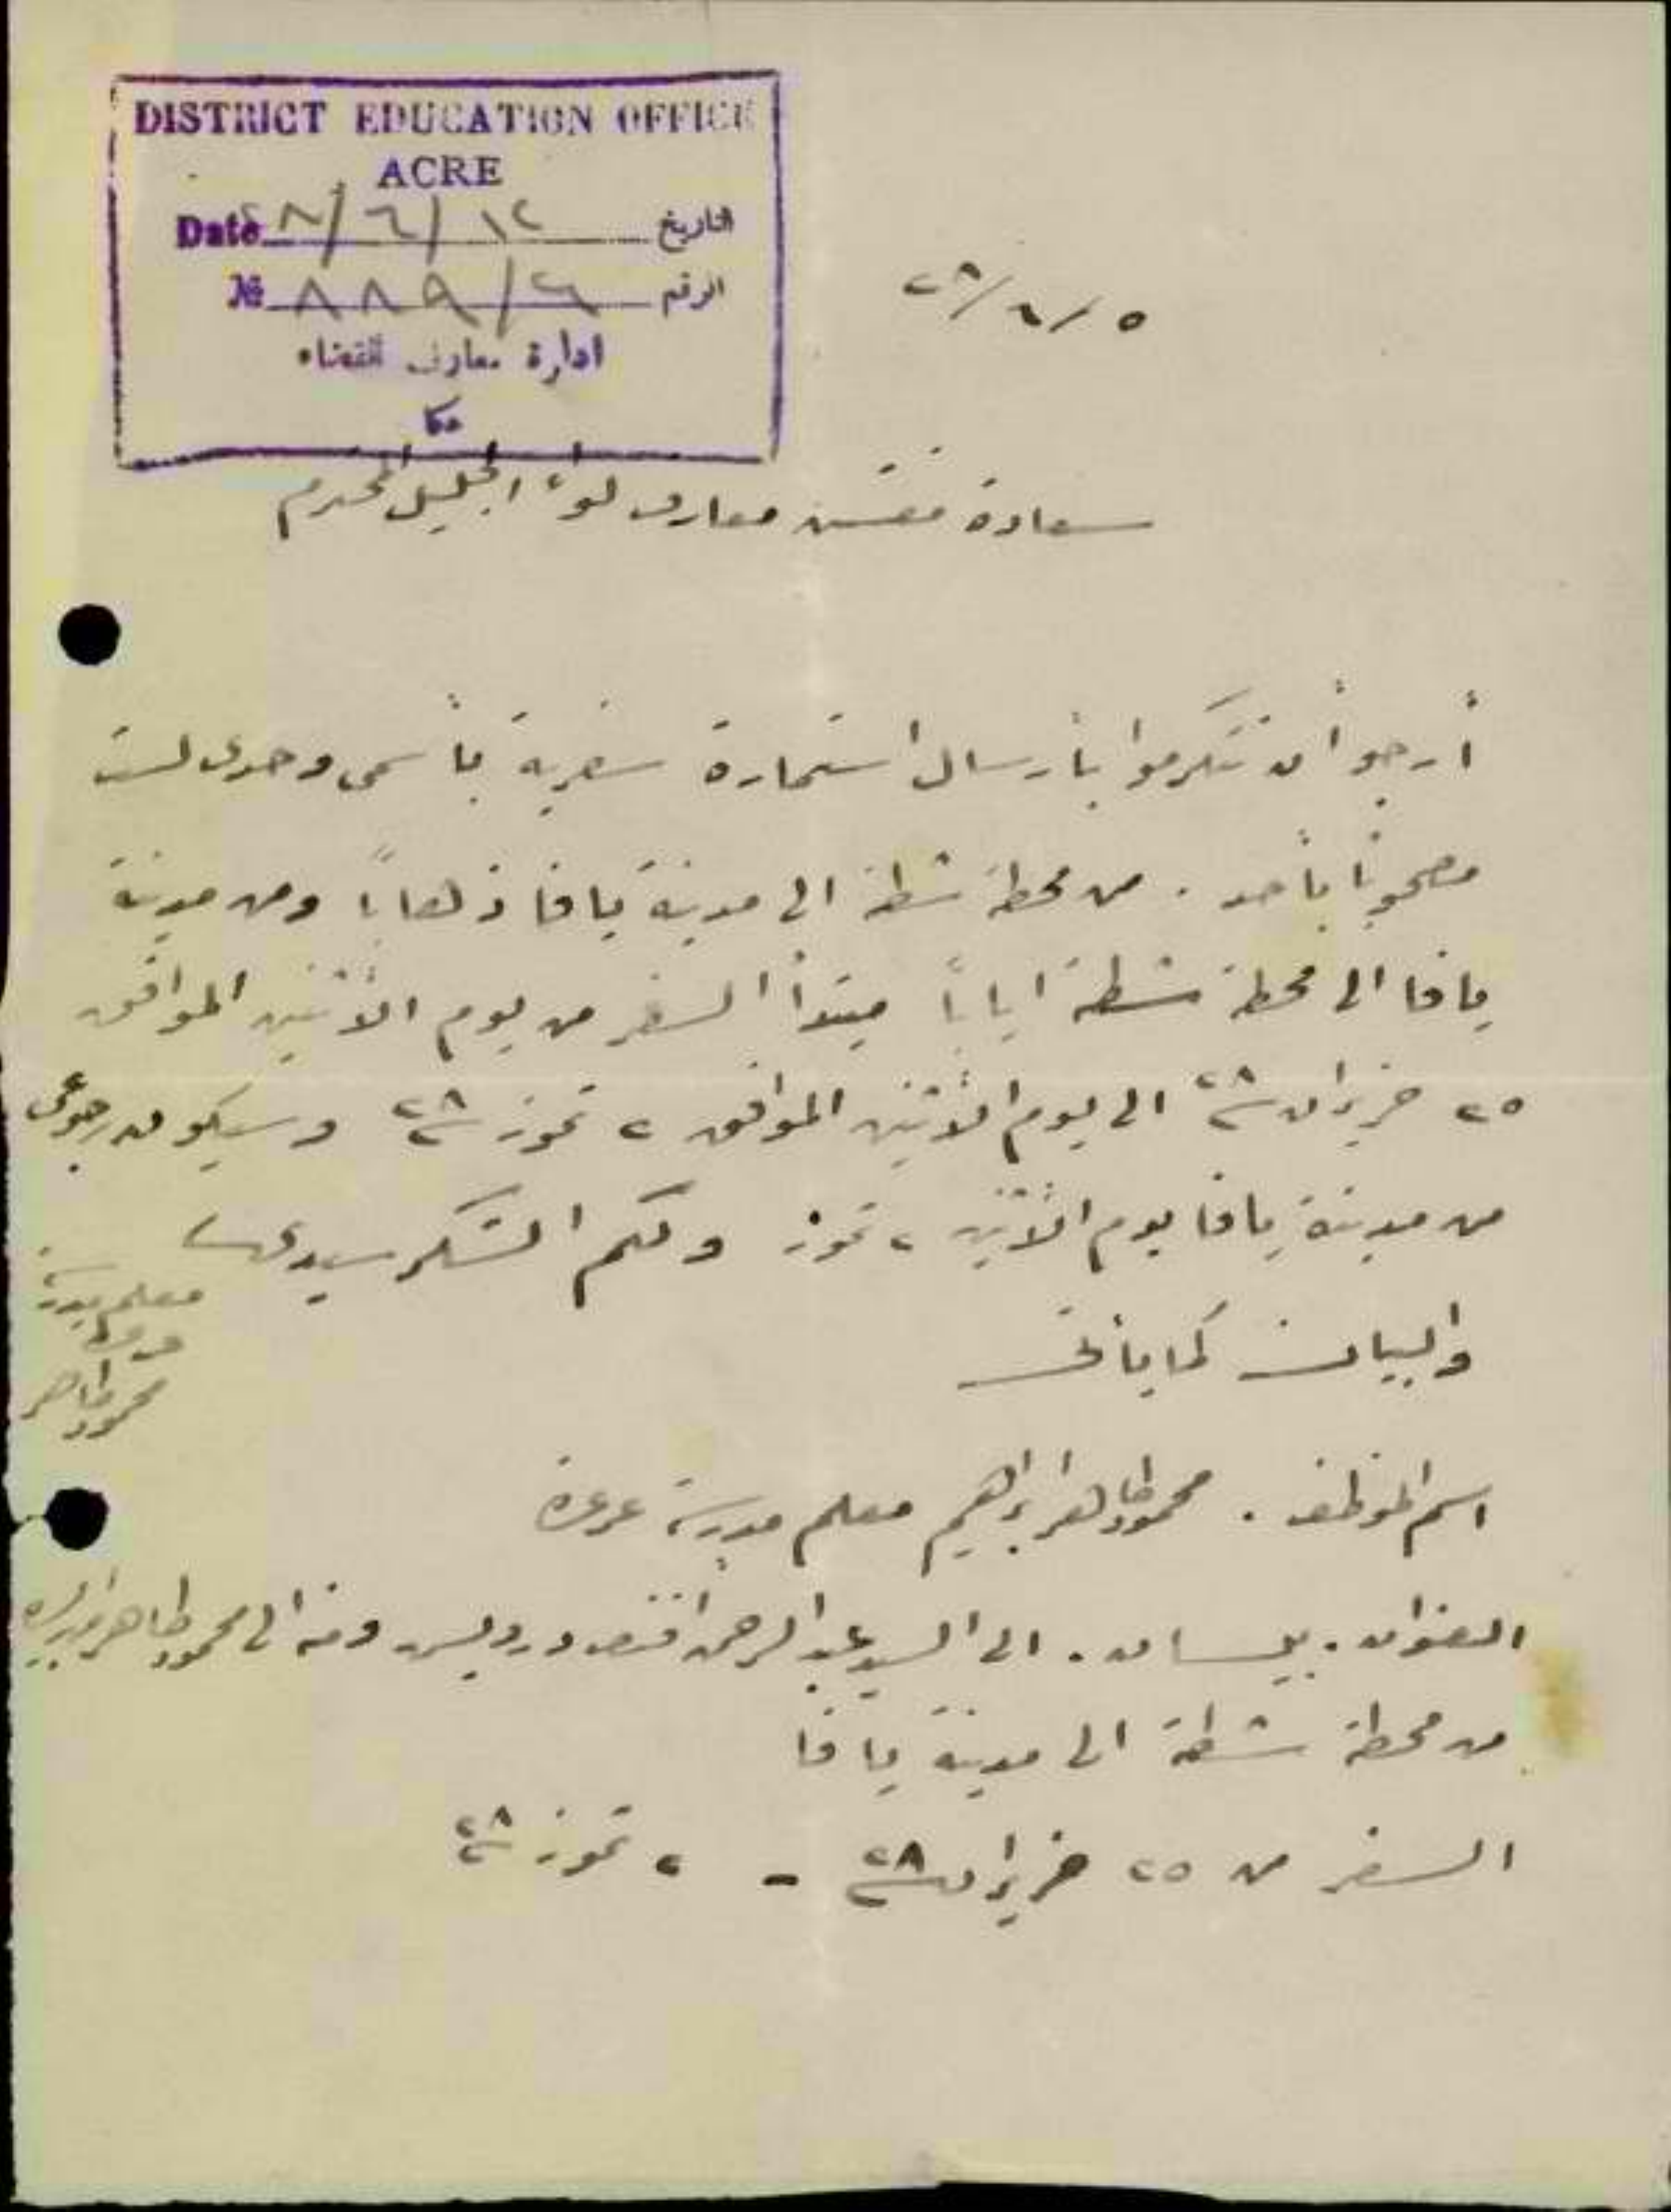 DISTRICT EDUCATION OFFICE
ACRE
Date ٢٨/٦/١٢ التاريخ
№ ٨٨٩/٦ الرقم
ادارة معارف القضاء
عكا
٢٨/٦/٥
سعادة مفتش معارف لواء الجليل المحترم
أرجو أن تتكرموا بأرسال استمارة سفرية بأسمي وحدي لست
مصحوبًا بأحد . من محطة شطة الى مدينة يافا ذهابًا ومن مدينة
يافا الى محطة شطة اياباً مبتدأ السفر من يوم الاثنين الموافق
٢٥ حزيران سنة ٢٨ الى يوم الاثنين الموافق ٢ تموز سنة ٢٨ وسيكون رجوعي
من مدينة يافا يوم الاثنين ٢ تموز ولكم الشكر سيدي
معلم مدرسة
محمود طاهر
والبيان كما يأتي
اسم الموظف . محمود طاهر ابراهيم معلم مدرسة عرعرة
العنوان . بيسان . الى السيد عبد الرحمن افندي درويش ومنه الى محمود طاهر
من محطة شطة الى مدينة يافا
السفر من ٢٥ حزيران سنة ٢٨ - ٢ تموز سنة ٢٨